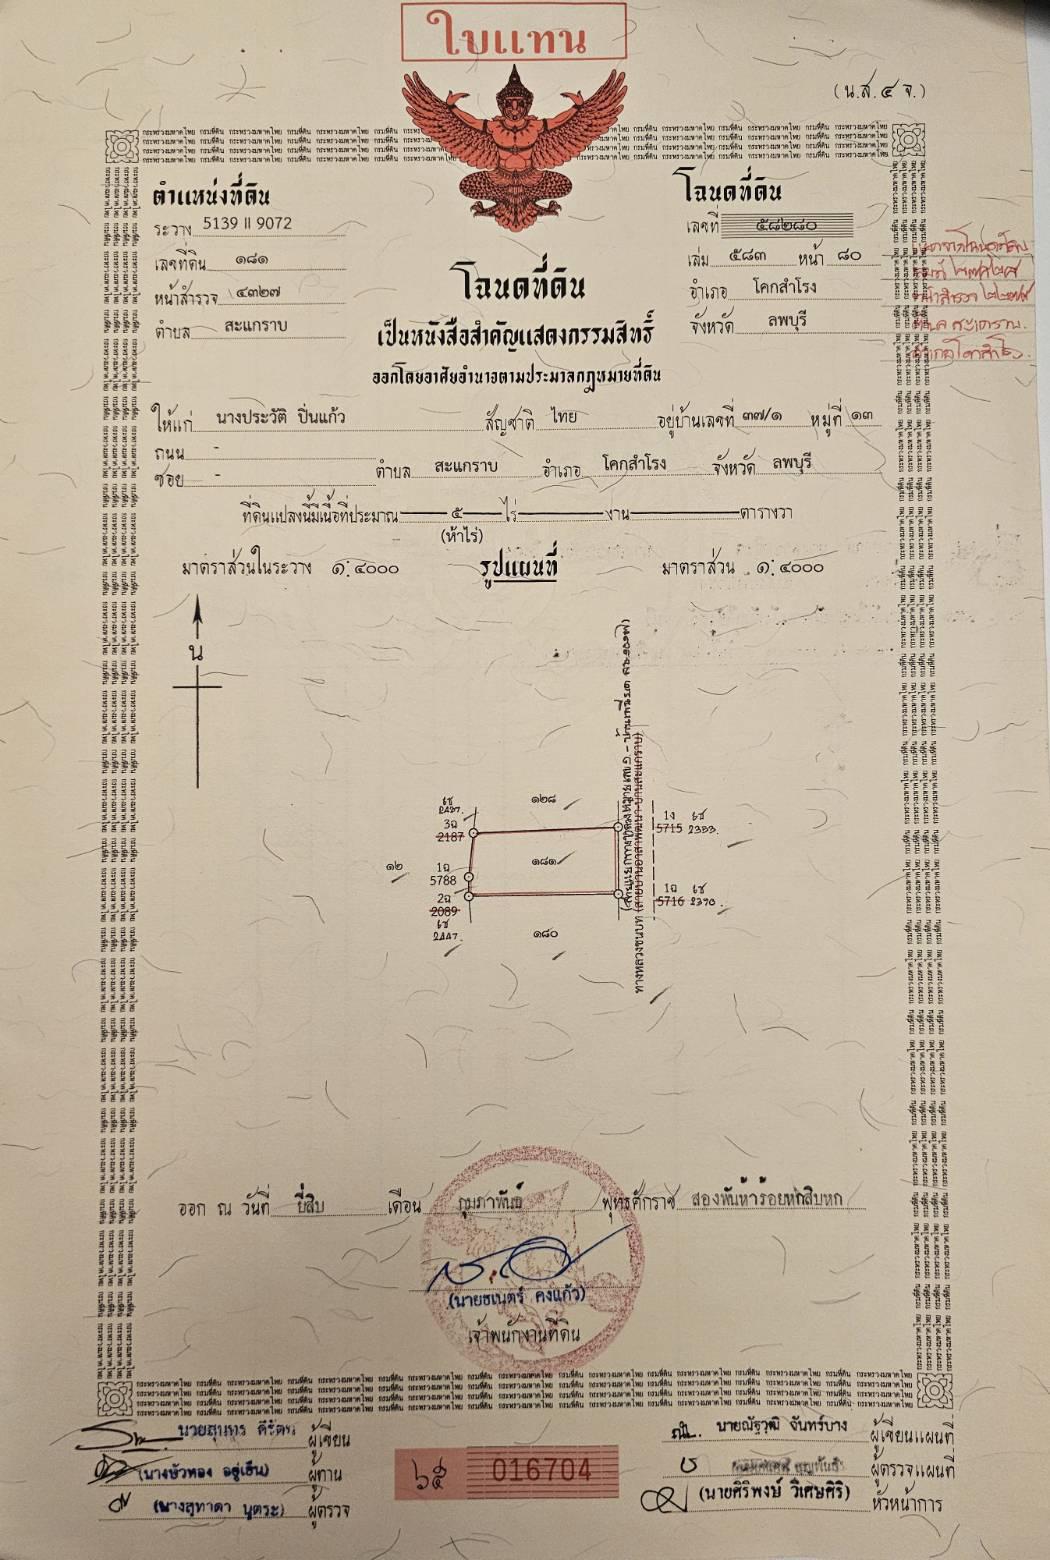 ใบแทน
(น.ส.๔ จ.)
ตำแหน่งที่ดิน
ระวาง 5139 II 9072
เลขที่ดิน ๑๘๑
หน้าสำรวจ ๔๓๒๗
ตำบล สะแกราบ
โฉนดที่ดิน
เลขที่ ๕๘๒๘๐
เล่ม ๕๘๓ หน้า ๘๐
อำเภอ โคกสำโรง
จังหวัด ลพบุรี
โฉนดที่ดิน
เป็นหนังสือสำคัญแสดงกรรมสิทธิ์
ออกโดยอาศัยอำนาจตามประมวลกฎหมายที่ดิน
ให้แก่ นางประวัติ ปิ่นแก้ว สัญชาติ ไทย อยู่บ้านเลขที่ ๓๗/๑ หมู่ที่ ๑๓
ถนน -
ซอย - ตำบล สะแกราบ อำเภอ โคกสำโรง จังหวัด ลพบุรี
ที่ดินแปลงนี้มีเนื้อที่ประมาณ ๕ ไร่ งาน ตารางวา
(ห้าไร่)
มาตราส่วนในระวาง ๑:๔๐๐๐ รูปแผนที่ มาตราส่วน ๑:๔๐๐๐
น
๑๒๘
3ฉ
2187
๑๘๑
๑๒
1ฉ
5788
2ฉ
2089
๑๘๐
1ง
5715
1ฉ
5716
ทางหลวงชนบท (สายบ้านอาสาพัฒนา-บ้านสะแกราบ)
ออก ณ วันที่ ยี่สิบ เดือน กุมภาพันธ์ พุทธศักราช สองพันห้าร้อยหกสิบหก
(นายธเนตร์ คงแก้ว)
เจ้าพนักงานที่ดิน
ผู้เขียน
(นางบัวทอง อยู่เย็น) ผู้ทาน
(นางสุทาดา บุตระ) ผู้ตรวจ
016704
นายณัฐวุฒิ จันทร์บาง ผู้เขียนแผนที่
ผู้ตรวจแผนที่
(นายศิริพงษ์ วิเศษศิริ) หัวหน้าการ